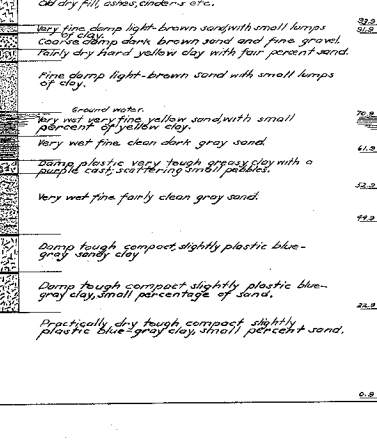 Old dry fill, ashes, cinders etc.
Very fine damp light-brown sand, with small lumps
of clay.
Coarse damp dark brown sand and fine gravel.
Fairly dry hard yellow clay with fair percent sand.
Fine damp light-brown sand with small lumps
of clay.
Ground water.
70.9
Very wet very fine yellow sand, with small
percent of yellow clay.
Very wet fine clean dark gray sand.
61.9
Damp plastic very tough greasy clay with a
purple cast; scattering small pebbles.
52.9
Very wet fine fairly clean gray sand.
Damp tough compact, slightly plastic blue-
gray sandy clay
Damp tough compact slightly plastic blue-
gray clay, small percentage of sand.
22.9
Practically dry tough compact slightly
plastic blue-gray clay, small percent sand.
0.9